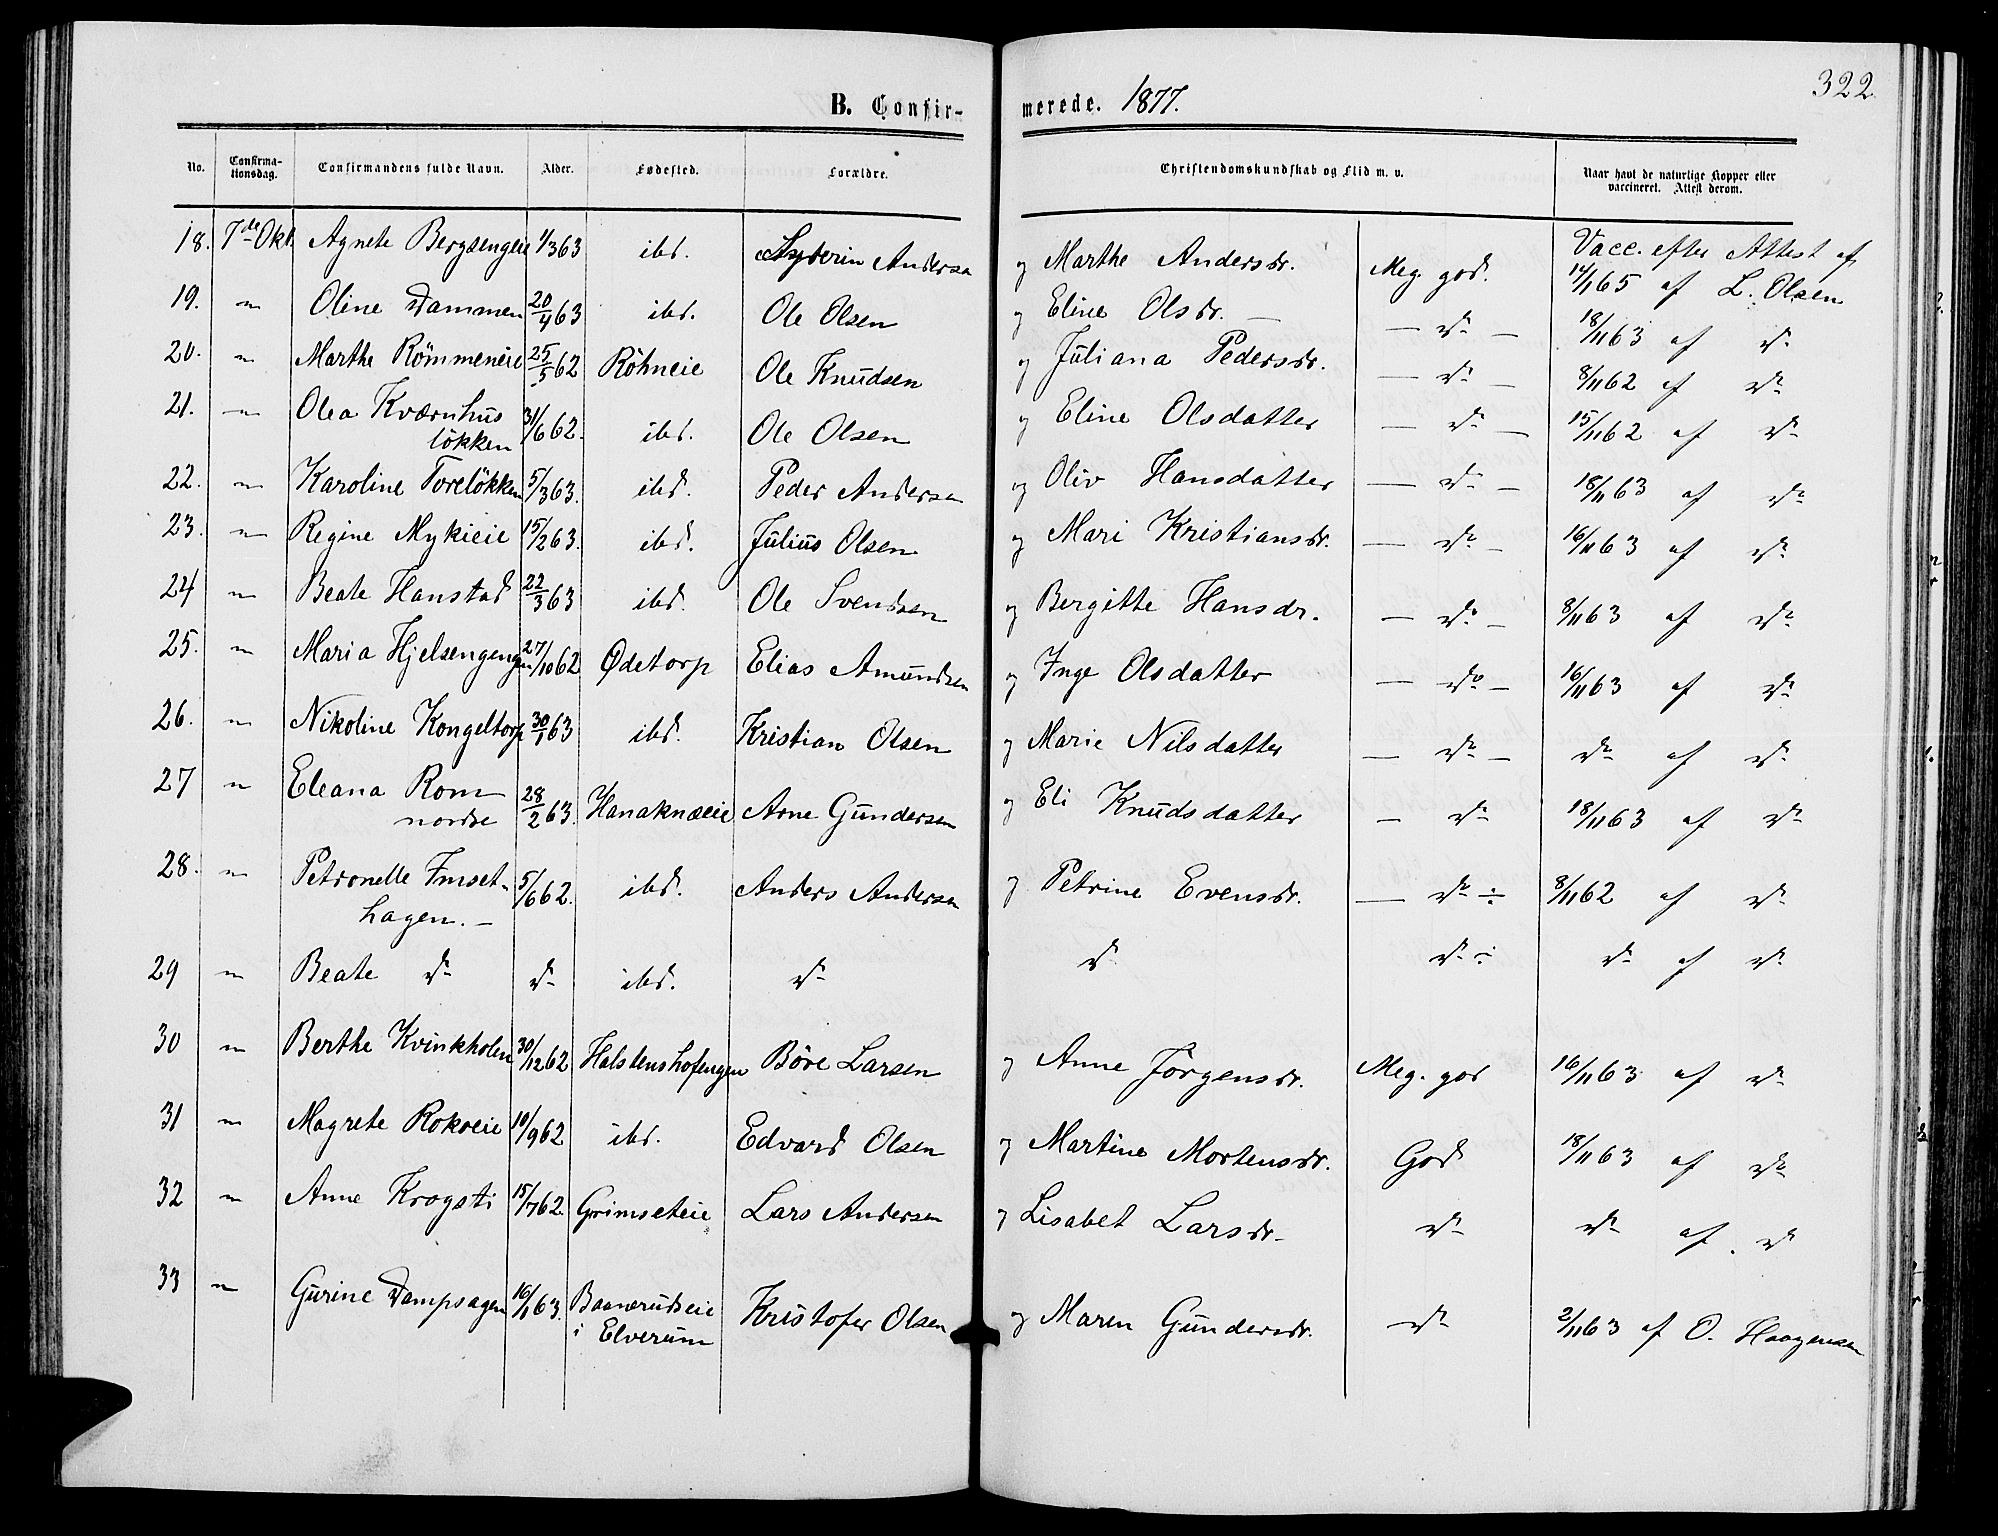 322.
B. Confirmerede. 1877.
No. Confirmationsdag. Confirmandens fulde Navn. Alder. Fødested. Forældre. Christendomskundskab og Flid m. v. Naar havt de naturlige Kopper eller vaccineret. Attest derom.
18. 7de Okt. Agnete Bergsengeie 1/3 63 ibd. Andersen og Marthe Andersdr. Meg. god. Vacc. efter Attest af 14/1 65 af L. Olsen
19. " Oline Dammen 20/4 63 ibd. Ole Olsen og Eline Olsdr. — — do — 18/11 63 af do
20. " Marthe Römmeneie 25/5 62 Röhneie Ole Knudsen og Juliana Pedersdr. — do — 8/11 62 af do
21. " Olea Kværnhus
lökken 31/6 62. ibd. Ole Olsen og Eline Olsdatter — do — 15/11 62 af do
22. " Karoline Torelökken 5/3 63. ibd. Peder Andersen og Oliv Hansdatter — do — 18/11 63 af do
23. " Regine Mykieie 15/2 63. ibd. Julius Olsen og Mari Kristiansdr. — do — 16/11 63 af do
24 " Beate Hanstad 22/3 63 ibd. Ole Svendsen og Bergitte Hansdr. — do — 8/11 63 af do
25. " Maria Hjelsengengen 27/10 62 Ødetorp Elias Amundsen og Inge Olsdatter — do — 16/11 63 af do
26. " Nikoline Kongeltorp 30/1 63 ibd. Kristian Olsen og Marie Nilsdatter — do — do af do
27 " Eleana Rom
nordre 28/2 63. Hanaknæeie Arne Gundersen og Eli Knudsdatter — do 18/11 63 af do
28. " Petronelle Imset-
hagen. — 5/6 62. ibd. Anders Andersen og Petrine Evensdr. — do ÷ 8/11 62 af do
29 " Beate do do ibd. do do do ÷ do af do
30 " Berthe Kvinkholen 30/12 62 Halstenshofengen Böre Larsen og Anne Jörgensdr. Meg. god 16/11 63 af do
31 " Magrete Rokoeie 10/9 62 ibd. Edvard Olsen og Martine Mortensdr. God 18/11 63 af do
32 " Anne Krogsti 15/7 62. Grimseteie Lars Andersen og Lisabet Larsdr. do do af do
33 " Gurine Dampsagen 16/1 63. Baanerudseie
i Elverum Kristofer Olsen og Maren Gundersdr. do 2/11 63 af O. Haagensen